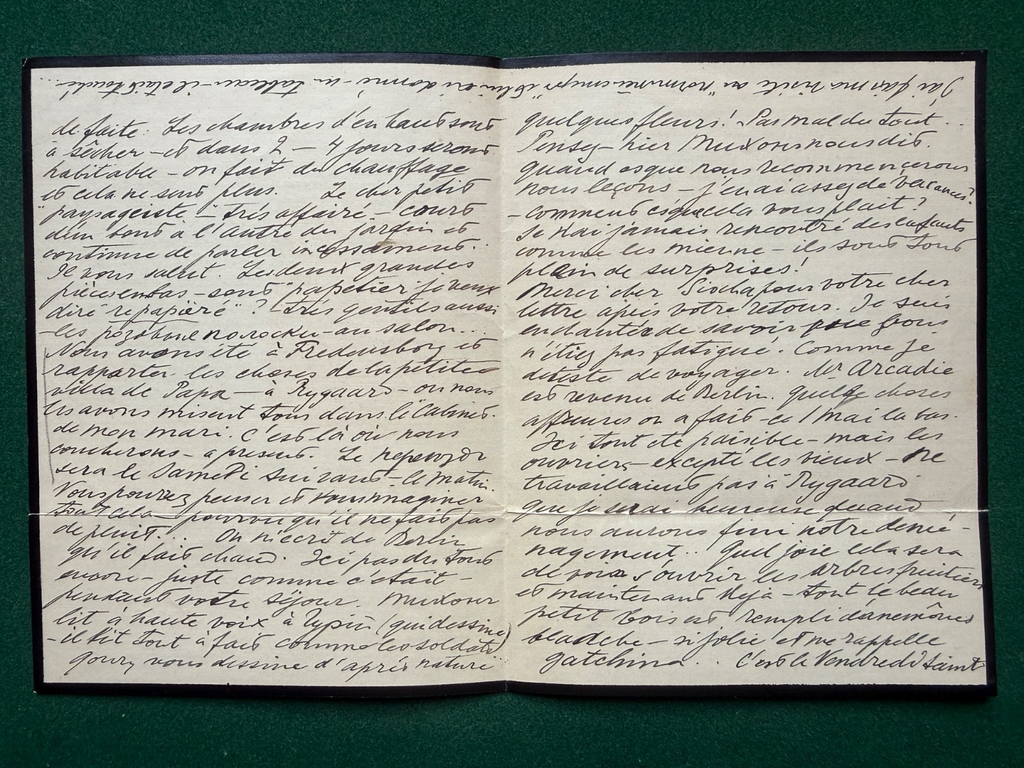 J'ai fait ma visite au
un tableau - il était touché...
de faite. Les chambres d'en haut sont
à sécher - et dans 2 - 4 jours seront
habitable - on fait du chauffage
et cela ne sent plus. Le cher petit
paysagiste - très affairé - court
d'un bout à l'autre du jardin et
continue de parler incessament.
Il vous salut. Les deux grandes
pièces en bas - sont "papetier" je veux
dire "repapiéré"? très gentils aussi
- les au salon...
Nous avons été à Fredensborg et
rapporter les choses de la petite
villa de Papa - à Rygaard - où nous
les avons mis et tous dans le Cabinet
de mon mari. C'est là où nous
coucherons - apresent. Le
sera le Samedi suivant - le matin.
Vous pourrez penser et vous imaginer
tout cela - pourvu qu'il ne fait pas
de pluit... On m'écrit de Berlin
qu'il fait chaud. Ici pas du tout
encore - juste comme c'était -
pendant votre séjour. Muxour
lit à haute voix à Typii (qui dessine)
- il lit tout à fait comme les soldats
Goury vous dessine d'après nature
quelques fleurs! Pas mal du tout..
Pensez - hier Muxour nous dit.
quand esque nous recommencerons
nous leçons - j'en ai assez de vacances?
- comment esque cela vous plait?
Je n'ai jamais rencontré des enfants
comme les mienne - ils sont tout
plein de surprises!
Merci cher pour votre cher
lettre après votre retour. Je suis
enchantée de savoir que vous
n'étiez pas fatigué. Comme je
déteste de voyager. Mr Arcadie
est revenu de Berlin. Quelque choses
affreuses on a fait - le 1 Mai la bas.
Ici tout été paisible - mais les
ouvriers - excepté les vieux - ne
travaillaient pas à Rygaard
Que je serai heureuse quand
nous aurons fini notre demé
nagement.. Quel joie cela sera
de voir s'ouvrir les arbres fruitiers
et maintenant déjà - tout le beau
petit bois est rempli d'anemônes
- si jolie et me rappelle
Gatchina.. C'est le Vendredi Saint